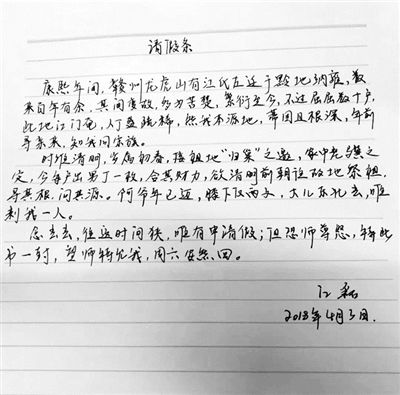 请假条
康熙年间，赣州龙虎山有江氏左迁于黔地纳雍，数
来百年有余，其间变故，多为苦楚，繁衍至今，不过屈屈数十户，
此地江门奄，人丁益疏稀，然我本源地，蒂固且根深，年前
寻亲来，知我同宗族。
时维清明，字属初春，接祖地“归巢”之邀，家中老骥之
定，令每户出男丁一枚，合其财力，欲清明前朝诣故地祭祖，
寻其根，问其源。何爷年已迈，膝下仅两子，大儿东北去，唯
剩我一人。
念去去，往返时间狭，唯有申请假；但恐师尊怒，特此
书一封，望师特允我，周六安然回。
江
2018年4月3日.